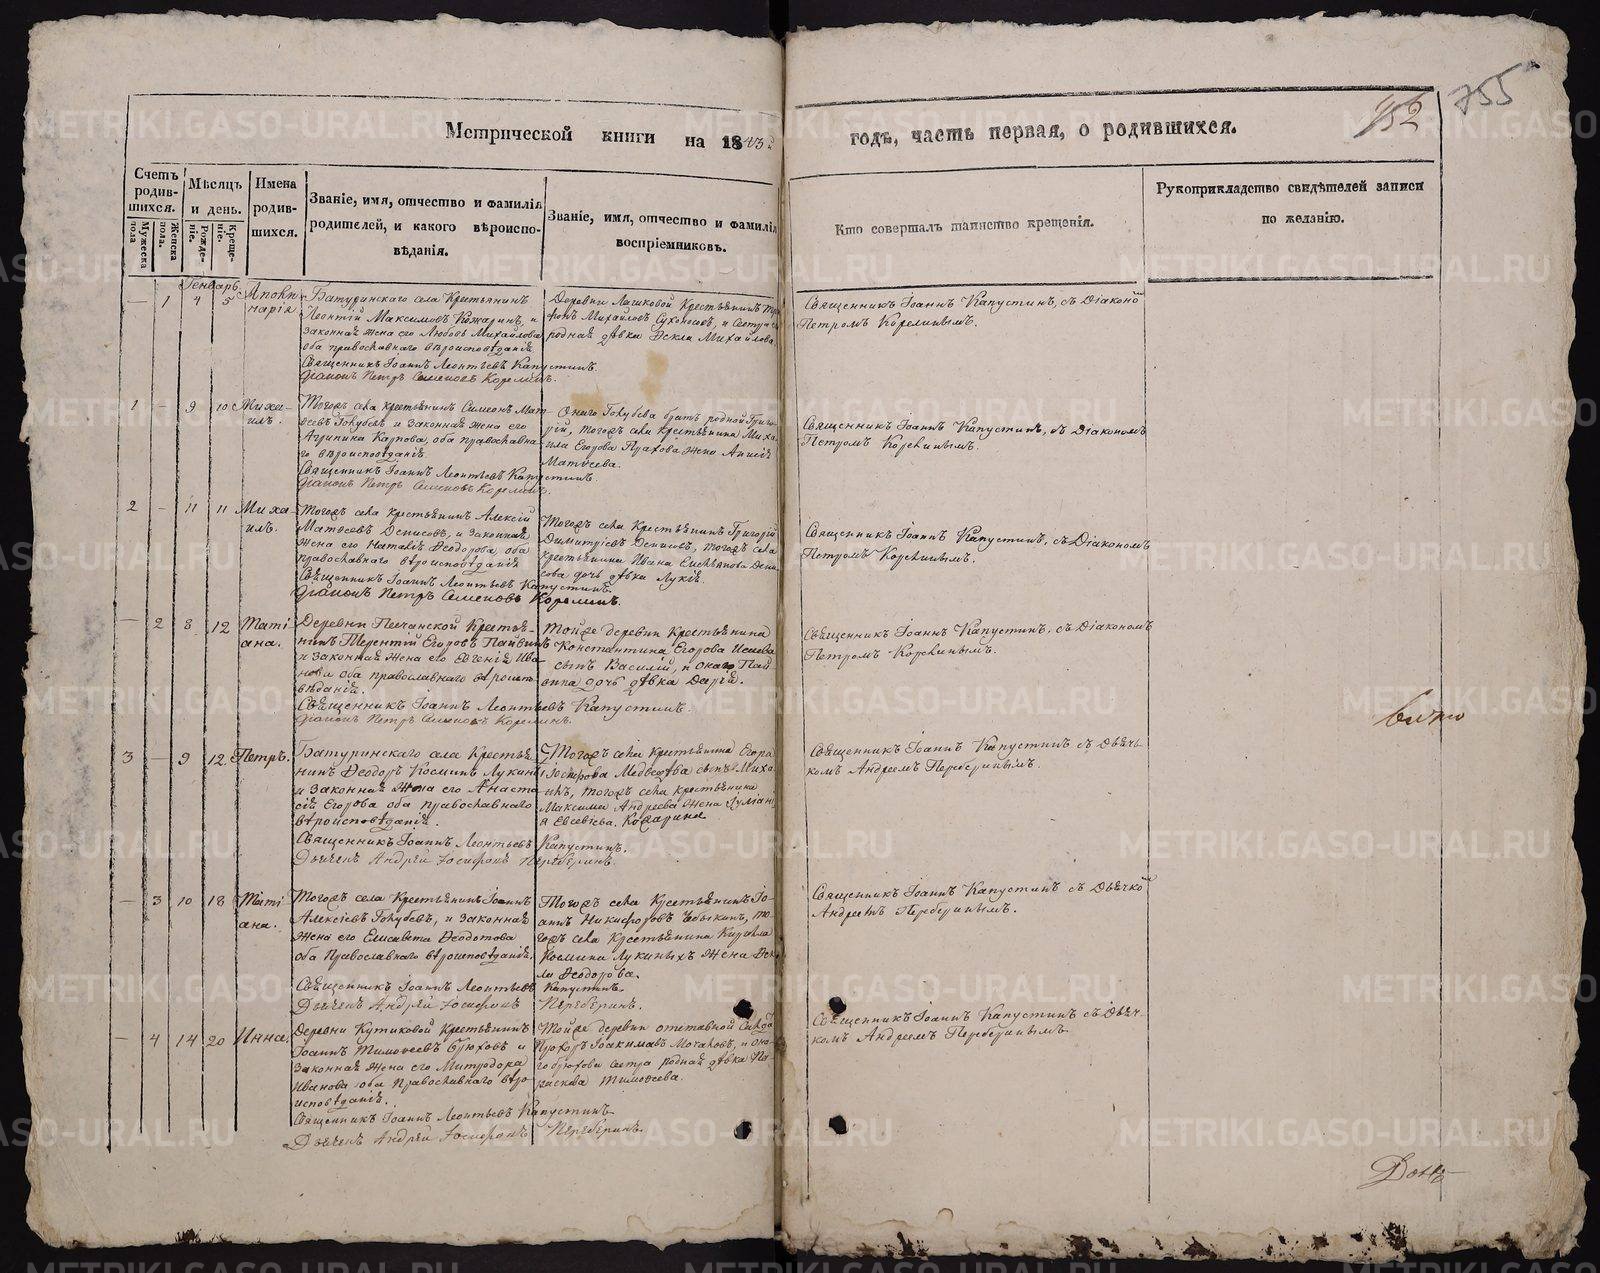 755
152
Метрической книги на 1843 годъ, часть первая, о родившихся.
Счетъ родившихся.
Мужеска пола
Женска пола.
Мѣсяцъ и день.
Рожденіе.
Крещеніе.
Имена родившихся.
Званіе, имя, отчество и фамилія родителей, и какого вѣроисповѣданія.
Званіе, имя, отчество и фамилія воспріемниковъ.
Кто совершалъ таинство крещенія.
Рукоприкладство свидѣтелей записи по желанію.
Генварь.
— 1 4 5
Аполинарія
Батуринскаго села Крестьянинъ
Леонтій Максимовъ Кожаринъ, и
законная жена его Любовь Михайлова
оба православнаго вѣроисповѣданія
Священникъ Іоаннъ Леонтьевъ Капустинъ.
Діаконъ Петръ Семеновъ Корелинъ.
Михайловъ Сухоносовъ, и сестра
родная дѣвка Ѳекла Михайлова
Священникъ Іоаннъ Капустинъ, съ Діакономъ
Петромъ Корелинымъ.
1 — 9 10
Михаилъ.
Тогожъ села крестьянинъ Симеонъ Матѳеевъ Голубевъ и законная жена его
Агрипина Карпова, оба православнаго вѣроисповѣданія
Священникъ Іоаннъ Леонтьевъ Капустинъ
Діаконъ Петръ Семеновъ Корелинъ.
Онаго Голубева братъ родной Григорій, тогожъ села крестьянина Михаила Егорова Прахова жена
Матѳеева.
Священникъ Іоаннъ Капустинъ, съ Діакономъ
Петромъ Корелинымъ.
2 — 11 11
Михаилъ.
Тогожъ села крестьянинъ Алексій
Матѳеевъ Денисовъ, и законная
жена его Наталія Ѳеодорова, оба
православнаго вѣроисповѣданія
Священникъ Іоаннъ Леонтьевъ Капустинъ.
Діаконъ Петръ Семеновъ Корелинъ.
Тогожъ села крестьянинъ Григорій
Димитріевъ Денисовъ, тогожъ села
крестьянина Ивана Денисова дочь дѣвка Лукія.
Священникъ Іоаннъ Капустинъ, съ Діакономъ
Петромъ Корелинымъ.
— 2 8 12
Татіана.
Деревни Песчанской Крестьянинъ Терентій Егоровъ Пайвинъ
и законная жена его Евгенія Иванова оба православнаго вѣроисповѣданія.
Священникъ Іоаннъ Леонтьевъ Капустинъ.
Діаконъ Петръ Семеновъ Корелинъ.
Тойже деревни крестьянина
Константина Егорова
сынъ Василій, и онаго Пайвина дочь дѣвка Дарія.
Священникъ Іоаннъ Капустинъ, съ Діакономъ
Петромъ Корелинымъ.
3 — 9 12
Петръ.
Батуринскаго села Крестьянинъ Ѳеодоръ Косминъ Лукинъ
и законная жена его Анастасія Егорова оба православнаго
вѣроисповѣданія.
Священникъ Іоаннъ Леонтьевъ Капустинъ.
Дьячекъ Андрей Іосифовъ Переберинъ.
Тогожъ села крестьянина Егора
Медведева сынъ
тогожъ села крестьянина
Максима Андреева жена
Евсевіева. Кожарина
Священникъ Іоаннъ Капустинъ съ Дьячкомъ Андреемъ Переберинымъ.
— 3 10 18
Татіана.
Тогожъ села Крестьянинъ Іоаннъ
Алексіевъ Голубевъ, и законная
жена его Елисавета Ѳеодотова
оба Православнаго вѣроисповѣданія.
Священникъ Іоаннъ Леонтьевъ Капустинъ.
Дьячекъ Андрей Іосифовъ Переберинъ.
Тогожъ села Крестьянинъ Іоаннъ Никифоровъ Чебыкинъ, тогожъ села Крестьянина Кирилла
Космина Лукиныхъ жена Ѳекла Ѳеодорова.
Священникъ Іоаннъ Капустинъ съ Дьячкомъ
Андреемъ Переберинымъ.
— 4 14 20
Инна.
Деревни Кутиковой Крестьянинъ
Іоаннъ Тимоѳеевъ Брюховъ и
законная жена его Митродора
Иванова оба Православнаго вѣроисповѣданія.
Священникъ Іоаннъ Леонтьевъ Капустинъ
Дьячекъ Андрей Іосифовъ Переберинъ.
Тойже деревни отставной
Іоакимовъ Мочаловъ, и онаго Брюхова сестра родная дѣвка Параскева Тимоѳеева.
Священникъ Іоаннъ Капустинъ съ Дьячкомъ Андреемъ Переберинымъ.
METRIKI.GASO-URAL.RU